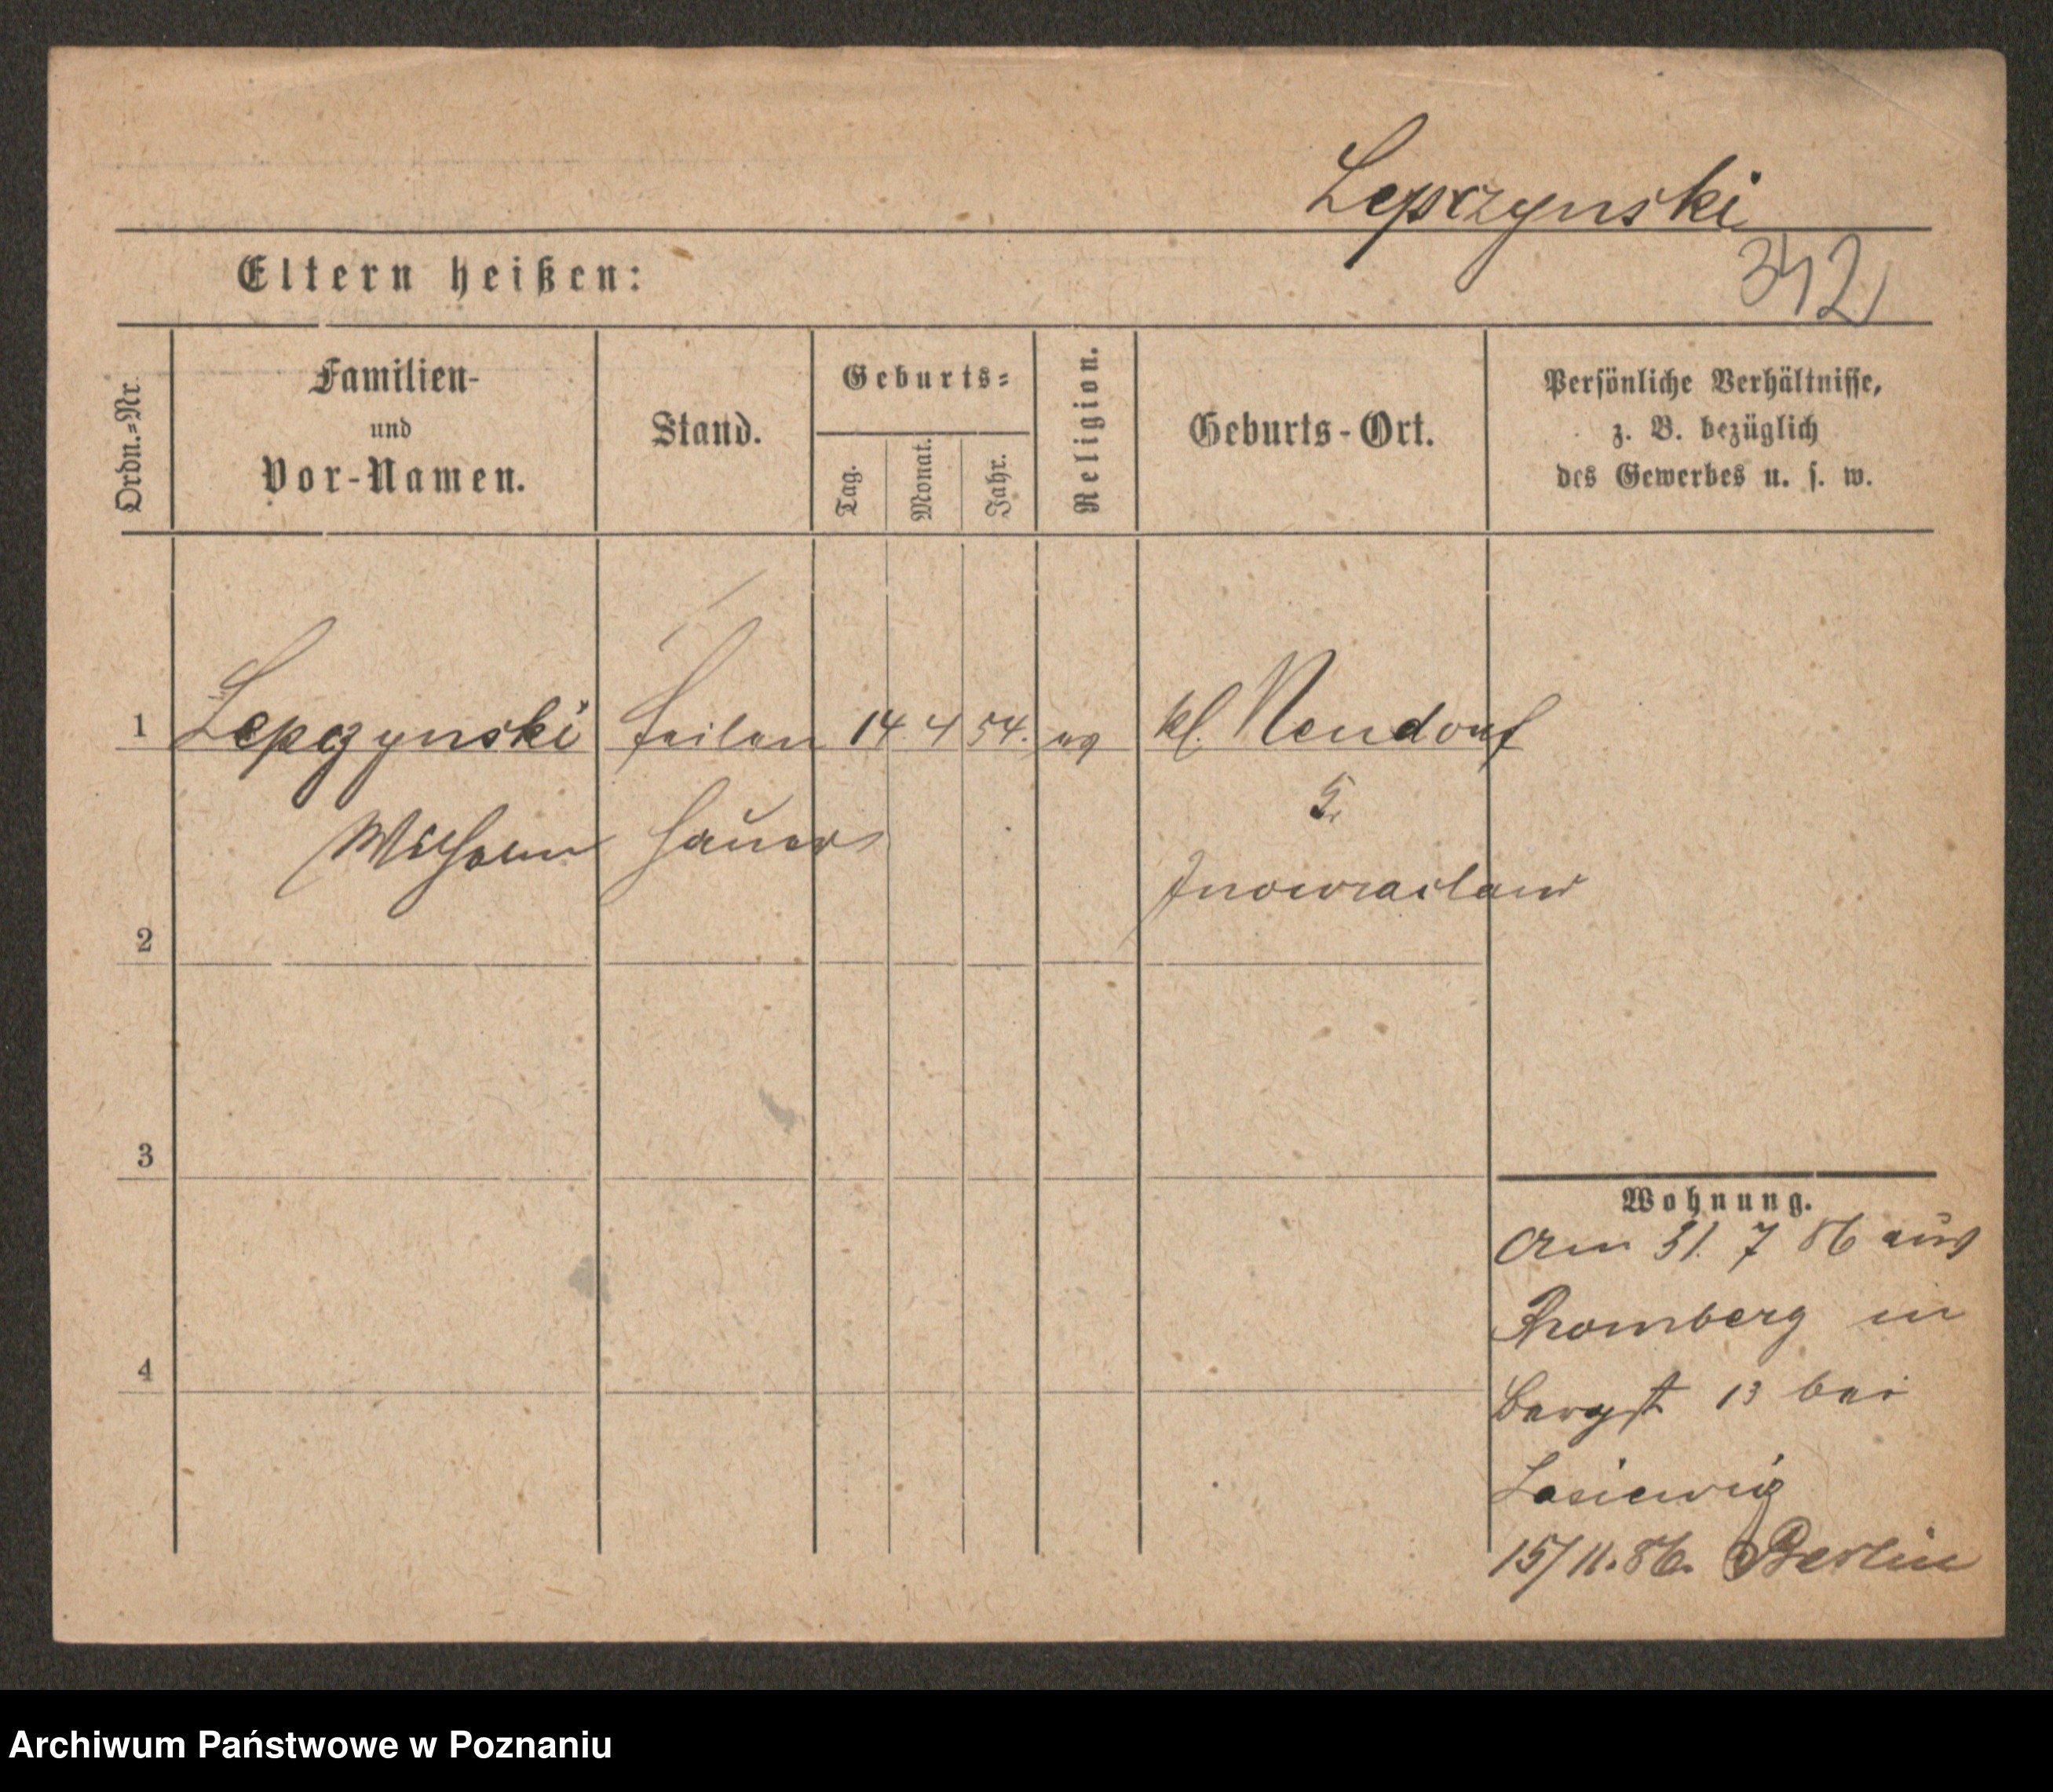 Lepczynski
342
Eltern heißen:
Ordn.-Nr.
Familien-
und
Vor-Namen.
Stand.
Geburts-
Tag.
Monat.
Jahr.
Religion.
Geburts-Ort.
Persönliche Verhältnisse,
z. B. bezüglich
des Gewerbes u. s. w.
1 Lepczynski Feilen 14 4 54. ev kl. Neudorf
Wilhelm hauer
Inowraclaw
2
3
4
Wohnung.
Am 31. 7 86 aus
Bromberg in
Bergst 13 bei
15/11.86. Berlin
Archiwum Państwowe w Poznaniu